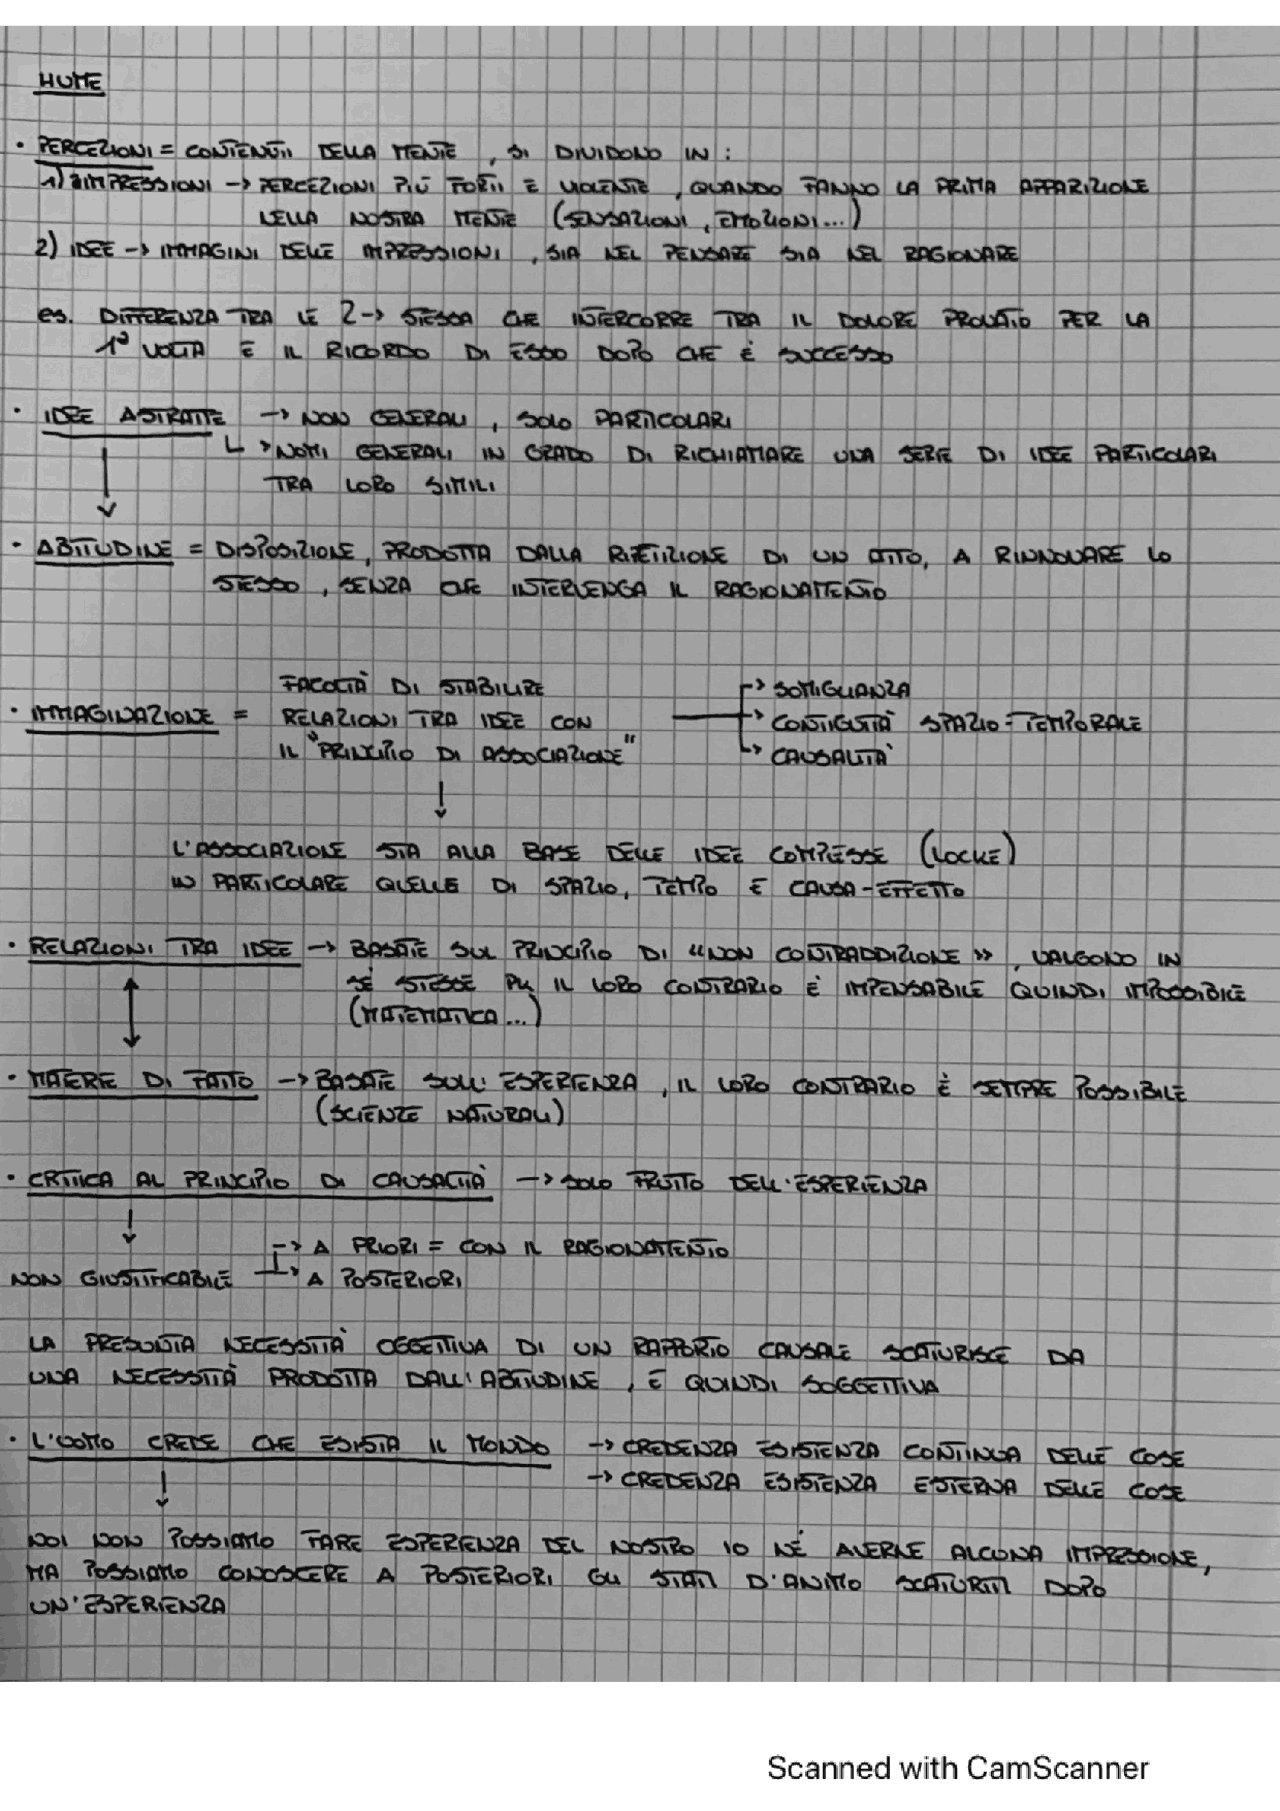 HUME
• PERCEZIONI = CONTENUTI DELLA MENTE, SI DIVIDONO IN:
1) IMPRESSIONI → PERCEZIONI PIÙ FORTI E VIOLENTE, QUANDO FANNO LA PRIMA APPARIZIONE
NELLA NOSTRA MENTE (SENSAZIONI, EMOZIONI...)
2) IDEE → IMMAGINI DELLE IMPRESSIONI, SIA NEL PENSARE SIA NEL RAGIONARE
es. DIFFERENZA TRA LE 2 → STESSA CHE INTERCORRE TRA IL DOLORE PROVATO PER LA
1ª VOLTA E IL RICORDO DI ESSO DOPO CHE È SUCCESSO
• IDEE ASTRATTE → NON GENERALI, SOLO PARTICOLARI
↳ NOMI GENERALI IN GRADO DI RICHIAMARE UNA SERIE DI IDEE PARTICOLARI
TRA LORO SIMILI
• ABITUDINE = DISPOSIZIONE, PRODOTTA DALLA RIPETIZIONE DI UN ATTO, A RINNOVARE LO
STESSO, SENZA CHE INTERVENGA IL RAGIONAMENTO
FACOLTÀ DI STABILIRE → SOMIGLIANZA
• IMMAGINAZIONE = RELAZIONI TRA IDEE CON → CONTIGUITÀ SPAZIO-TEMPORALE
IL "PRINCIPIO DI ASSOCIAZIONE" ↳ CAUSALITÀ
↓
L'ASSOCIAZIONE STA ALLA BASE DELLE IDEE COMPLESSE (LOCKE)
IN PARTICOLARE QUELLE DI SPAZIO, TEMPO E CAUSA-EFFETTO
• RELAZIONI TRA IDEE → BASATE SUL PRINCIPIO DI "NON CONTRADDIZIONE", VALGONO IN
SÉ STESSE IL LORO CONTRARIO È IMPENSABILE QUINDI IMPOSSIBILE
(MATEMATICA...)
• MATERIE DI FATTO → BASATE SULL'ESPERIENZA, IL LORO CONTRARIO È SEMPRE POSSIBILE
(SCIENZE NATURALI)
• CRITICA AL PRINCIPIO DI CAUSALITÀ → SOLO FRUTTO DELL'ESPERIENZA
↓
→ A PRIORI = CON IL RAGIONAMENTO
NON GIUSTIFICABILE → A POSTERIORI
LA PRESUNTA NECESSITÀ OGGETTIVA DI UN RAPPORTO CAUSALE SCATURISCE DA
UNA NECESSITÀ PRODOTTA DALL'ABITUDINE, E QUINDI SOGGETTIVA
• L'UOMO CREDE CHE ESISTA IL MONDO → CREDENZA ESISTENZA CONTINUA DELLE COSE
→ CREDENZA ESISTENZA ESTERNA DELLE COSE
NOI NON POSSIAMO FARE ESPERIENZA DEL NOSTRO IO NÉ AVERNE ALCUNA IMPRESSIONE,
MA POSSIAMO CONOSCERE A POSTERIORI GLI STATI D'ANIMO SCATURITI DOPO
UN'ESPERIENZA
Scanned with CamScanner